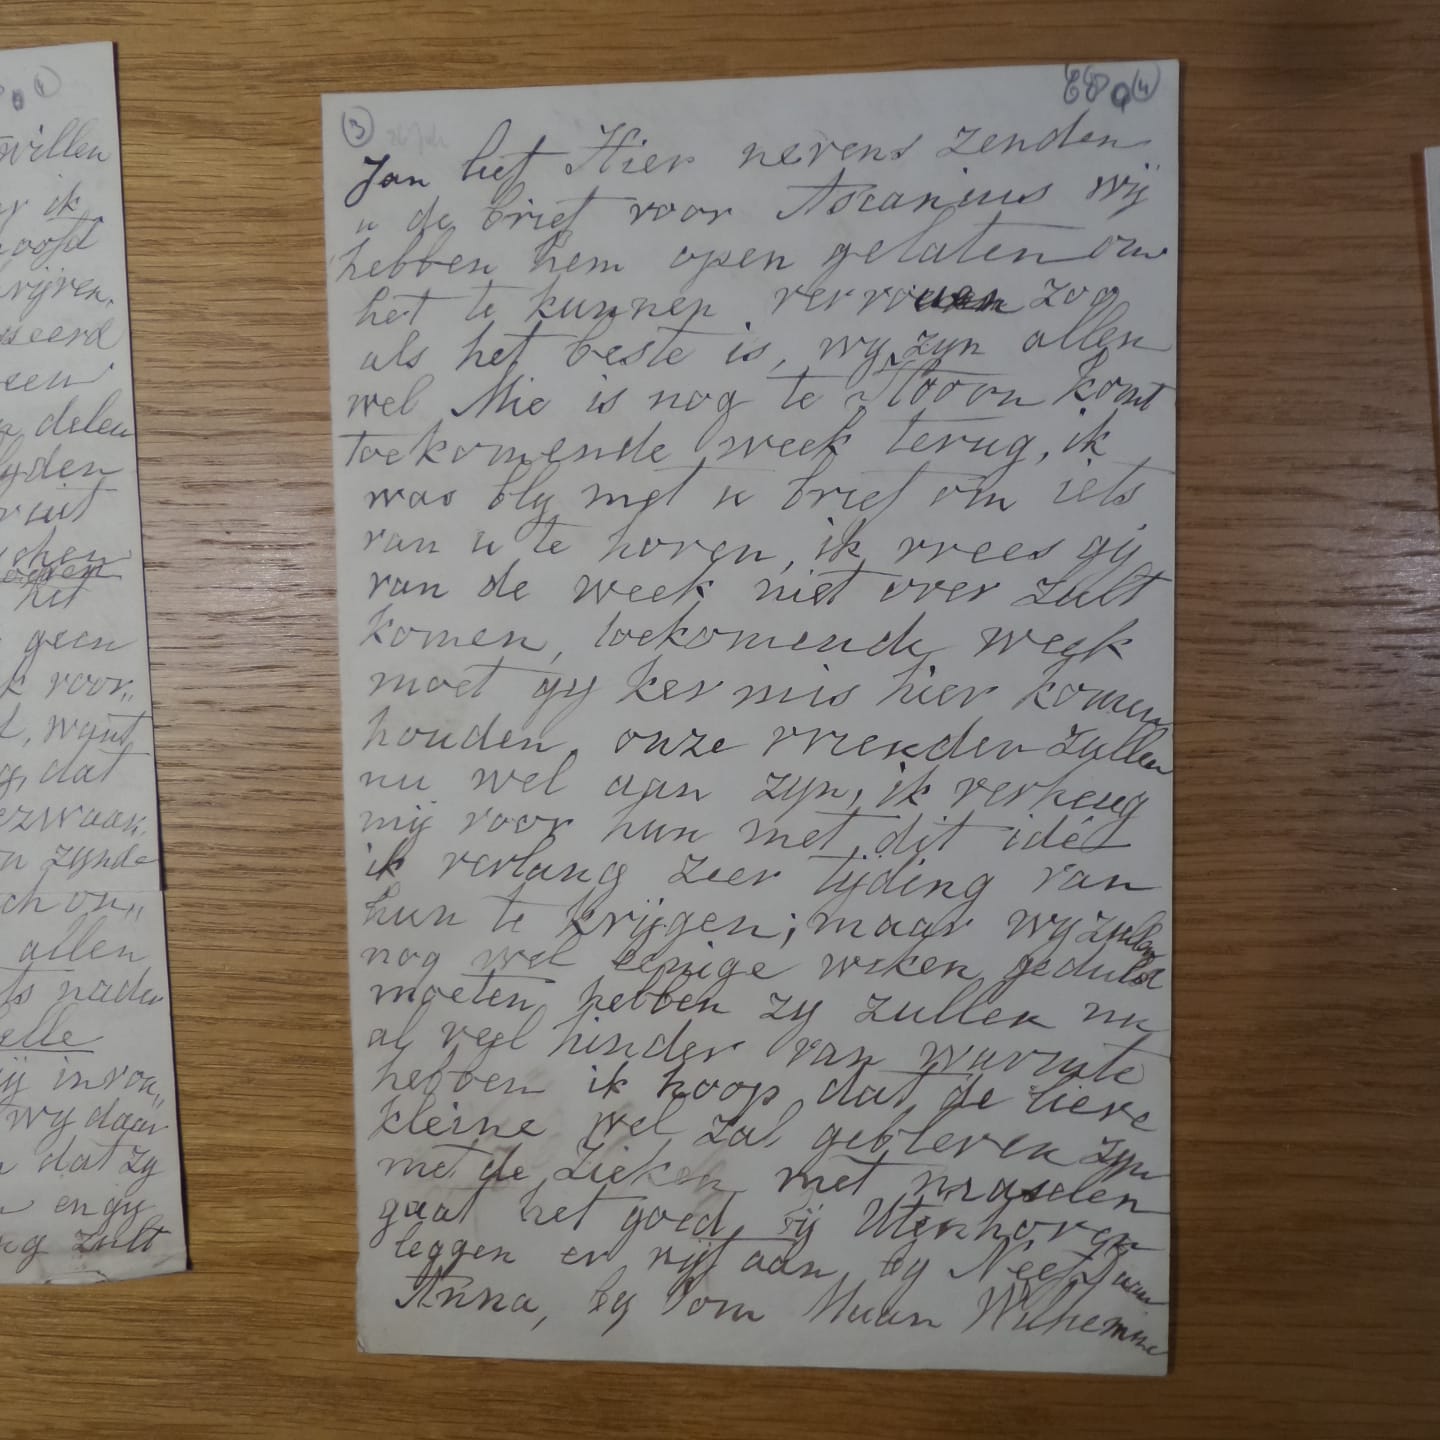 willen
ik
hoofd
een
delen
yden
het
geen
k voor„
, want
g, dat
zynde
ch on„
allen
ts nader
elle
wy daar
dat zy
en gy
zult
③
④
Jan lief Hier nevens zenden
u de brief voor Ascanius wij
hebben hem open gelaten om
het te kunnen zoo
als het beste is, wy zyn allen
wel Mie is nog te Hoorn komt
toekomende week terug, ik
was bly met u brief om iets
van u te horen, ik vrees gij
van de week niet over zult
komen, toekomende week
moet gy kermis hier komen
houden, onze vrienden zullen
nu wel aan zyn, ik verheug
mij voor hun met dit ideé
ik verlang zeer tijding van
hun te krijgen; maar wy zullen
nog wel eenige weken geduld
moeten hebben zy zullen nu
al veel hinder van warmte
hebben ik hoop dat de lieve
kleine wel zal gebleven zyn
met de zieken met mazelen
gaat het goed, bij Utenhoven
leggen er vijf aan, by Neef Daan
Anna, by Tom Maan Wilhemine